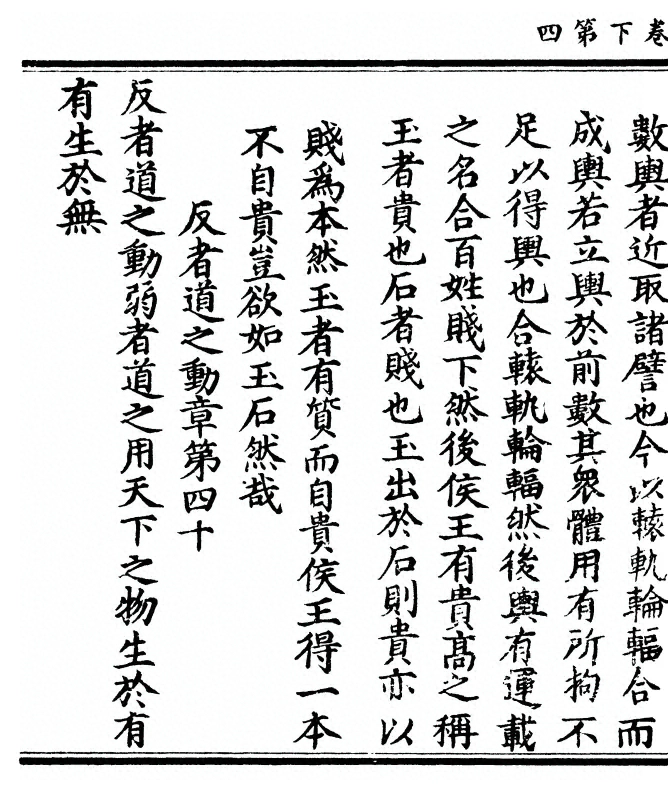 卷下第四
數輿者近取諸譬也今以轅軌輪輻合而
成輿若立輿於前數其眾體用有所拘不
足以得輿也合轅軌輪輻然後輿有運載
之名合百姓賤下然後侯王有貴高之稱
玉者貴也石者賤也玉出於石則貴亦以
賤爲本然玉者有質而自貴侯王得一本
不自貴豈欲如玉石然哉
反者道之動章第四十
反者道之動弱者道之用天下之物生於有
有生於無